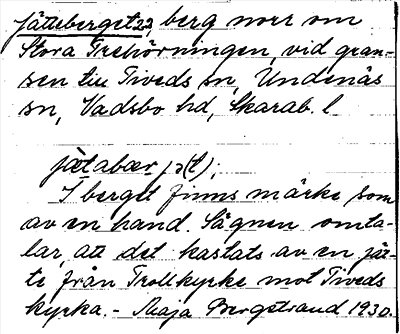 Jätteberget 22, berg norr om
Stora Trehörningen, vid grän-
sen till Tiveds sn, Undenäs
sn, Vadsbo hd, Skarab. l.
jætabær jə(t);
I berget finns märke som
av en hand. Sägnen omta-
lar, att det kastats av en jät-
te från Trollkyrke mot Tiveds
kyrka. - Maja Bergstrand 1930.